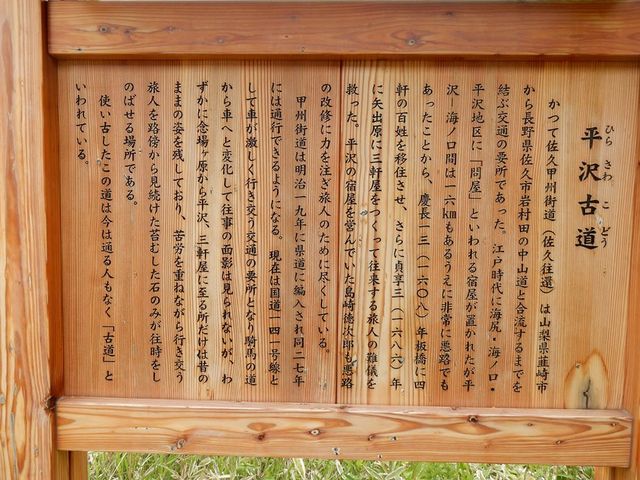 平沢古道
ひら さわ こ どう
かつて佐久甲州街道（佐久往還）は山梨県韮崎市
から長野県佐久市岩村田の中山道と合流するまでを
結ぶ交通の要所であった。江戸時代に海尻・海ノ口・
平沢地区に「問屋」といわれる宿屋が置かれたが平
沢－海ノ口間は一六㎞もあるうえに非常に悪路でも
あったことから、慶長一三（一六〇八）年板橋に四
軒の百姓を移住させ、さらに貞享三（一六八六）年
に矢出原に三軒屋をつくって往来する旅人の難儀を
救った。平沢の宿屋を営んでいた島崎徳次郎も悪路
の改修に力を注ぎ旅人のために尽くしている。
甲州街道は明治一九年に県道に編入され同二七年
には通行できるようになる。現在は国道一四一号線と
して車が激しく行き交う交通の要所となり騎馬の道
から車へと変化して往事の面影は見られないが、わ
ずかに念場ヶ原から平沢、三軒屋に至る所だけは昔の
ままの姿を残しており、苦労を重ねながら行き交う
旅人を路傍から見続けた苔むした石のみが往時をし
のばせる場所である。
使い古したこの道は今は通る人もなく「古道」と
いわれている。